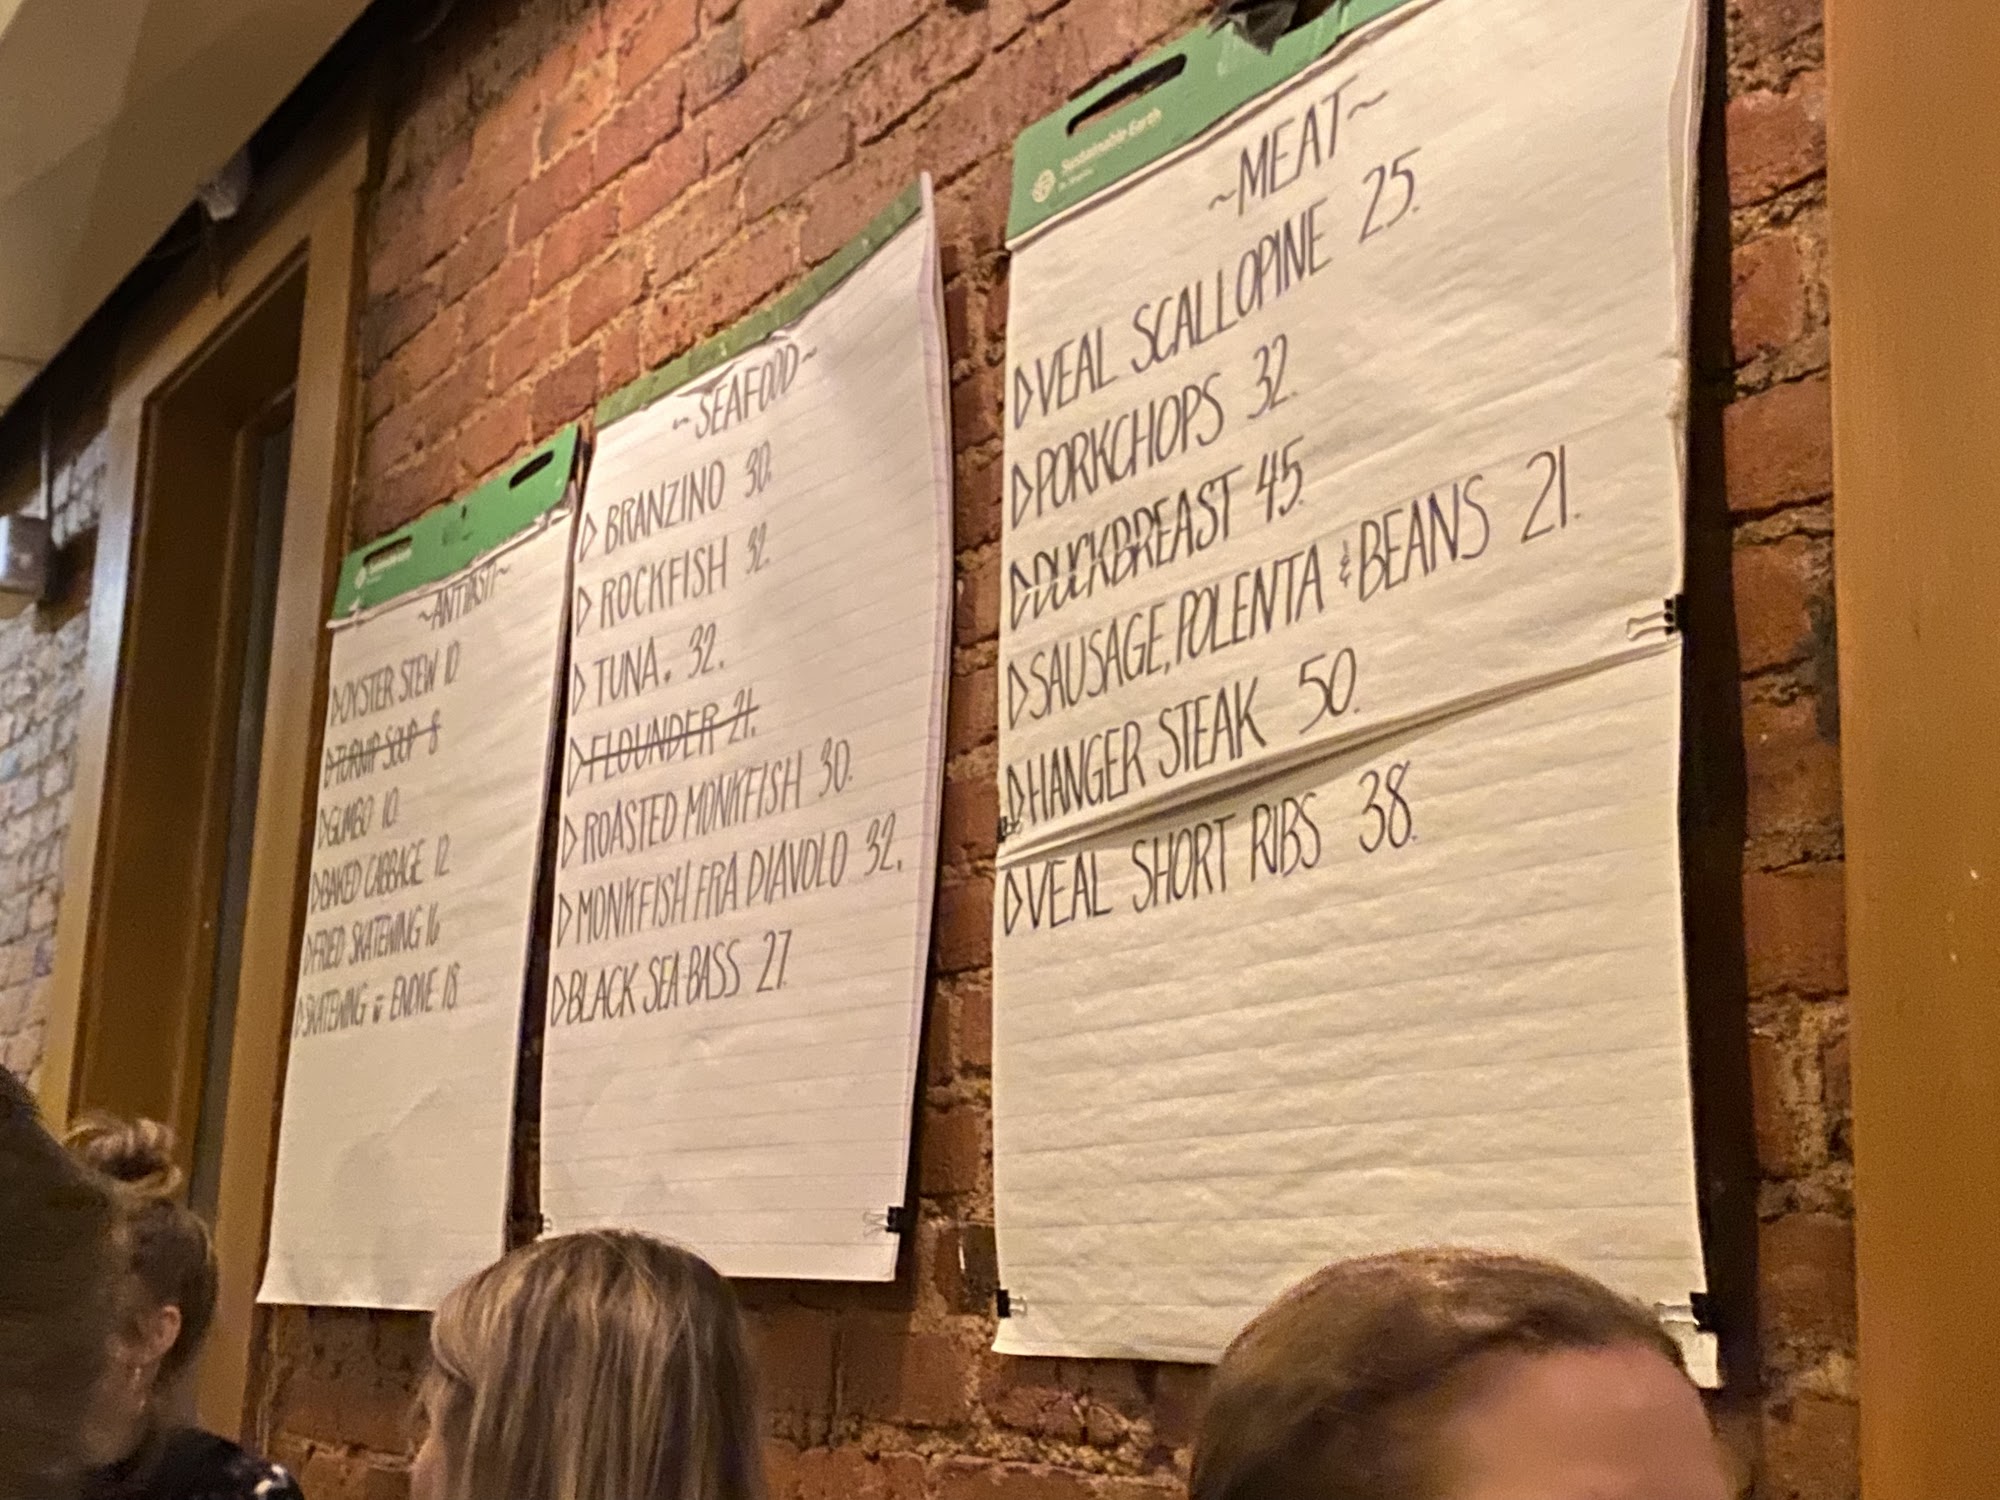 ~ANTIPASTI~
▷OYSTER STEW 10.
▷TURNIP SOUP 8
▷GUMBO 10.
▷BAKED CABBAGE 12.
▷FRIED SKATEWING 16
▷SKATEWING & ENDIVE 18.
~SEAFOOD~
▷ BRANZINO 30.
▷ ROCKFISH 32.
▷ TUNA. 32.
▷FLOUNDER 21.
▷ROASTED MONKFISH 30.
▷MONKFISH FRA DIAVOLO 32.
▷BLACK SEA BASS 27.
Sustainable Earth
~MEAT~
▷VEAL SCALLOPINE 25.
▷PORKCHOPS 32.
▷DUCKBREAST 45.
▷SAUSAGE, POLENTA & BEANS 21.
▷HANGER STEAK 50.
▷VEAL SHORT RIBS 38.